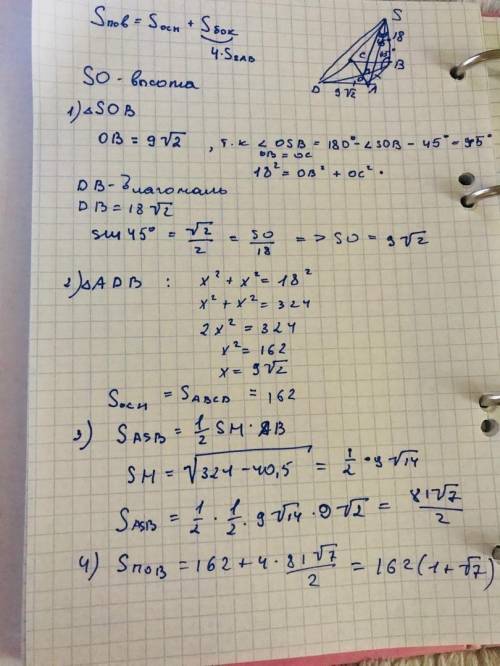 Sпов = Sосн + Sбок
4·SSAB
SO - высота
1) △SOB
OB = 9√2 , т.к ∠OSB = 180° - ∠SOB - 45° = 45°
OB = OC
18² = OB² + OC² ·
DB - диагональ
DB = 18√2
sin 45° = √2/2 = SO/18 => SO = 9√2
2) △ADB : x² + x² = 18²
x² + x² = 324
2x² = 324
x² = 162
x = 9√2
Sосн = SABCD = 162
3) SASB = 1/2 SH · AB
SH = √(324 - 40,5) = 1/2 · 9√14
SASB = 1/2 · 1/2 · 9√14 · 9√2 = 81√7/2
4) Sпов = 162 + 4 · 81√7/2 = 162(1+√7)
S
18
C
B
D
A
9√2